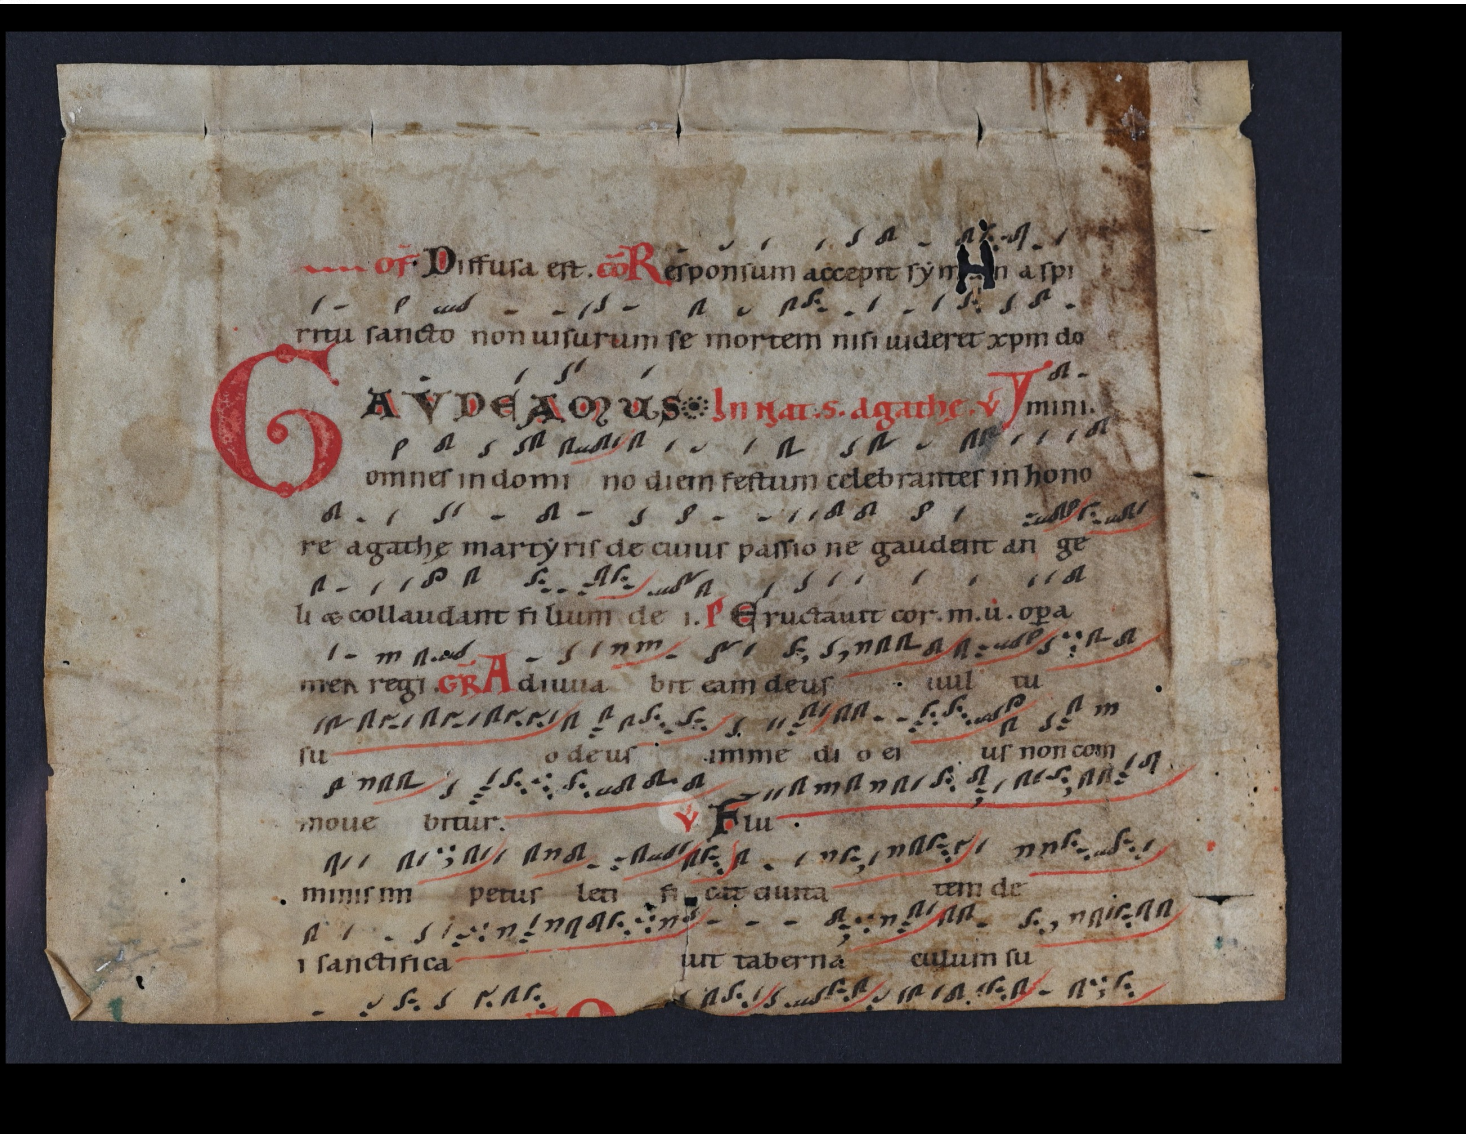 of. Diffusa est. cō Responsum accepit sym n a spi
ritu sancto non uisurum se mortem nisi uideret xpm do
GAVDEAMUS In nat. s. agathe. mini.
omnes in domi no diem festum celebrantes in hono
re agathe martyris de cuius passio ne gaudent an ge
li & collaudant fi lium de i. P Eructauit cor. m. u. opa
mea regi. GR Adiuua bit eam deus uul tu
su o deus imme di o ei us non com
moue bitur. V Flu
minis im petus leti fi cat ciuita tem de
i sanctifica uit taberna culum su